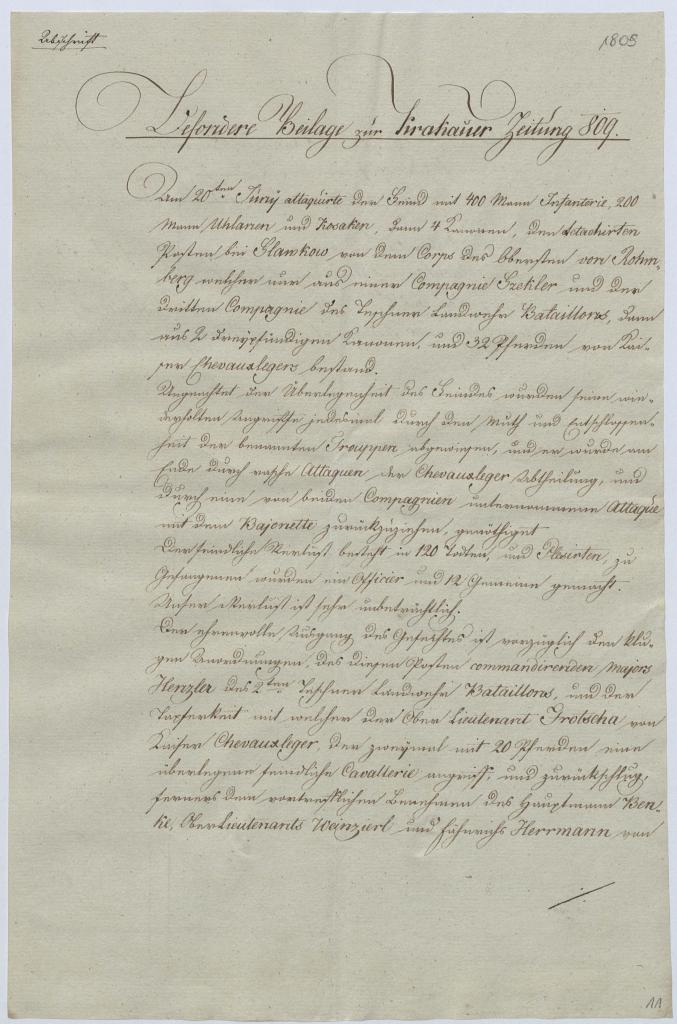 Abschrift
1809
Besondere Beilage zur Krakauer Zeitung 809.
Am 20ten Juny attaquirte der Feind mit 400 Mann Infanterie, 200
Mann Uhlanen und Kosaken, dann 4 Kanonen, den detachirten
Posten bei Slawkow von dem Corps des Obersten von Rohm-
berg welcher nur aus einer Compagnie Szekler und der
dritten Compagnie des Teschner Landwehr Bataillons, dann
aus 2 dreypfündigen Kanonen, und 32 Pferden von Kai-
ser Chevauxlegers bestand.
Ungeachtet der Überlegenheit des Feindes wurden seine wie-
derholten Angriffe jedesmal durch den Muth und Entschlossen-
heit der benannten Trouppen abgewiesen, und er wurde am
Ende durch rasche Attaquen der Chevauxleger Abtheilung, und
durch eine von beiden Compagnien unternommene Attaque
mit dem Bajonette zurückzuziehen, genöthiget
Der feindliche Verlust besteht in 120 Todten, und Plesirten, zu
Gefangenen wurden ein Officier und 12 Gemeine gemacht.
Unser Verlust ist sehr unbeträchtlich.
Der ehrenvolle Ausgang des Gefechtes ist vorzüglich den klu-
gen Anordnungen, des diesen Posten commandirenden Majors
Henzler des 2ten Teschner Landwehr Bataillons, und der
Tapferkeit mit welcher der Ober Lieutenant Trotscha von
Kaiser Chevauxleger, der zweymal mit 20 Pferden eine
überlegene feindliche Cavallerie angriff, und zurückschlug,
ferners dem vortrefflichen Benehmen des Hauptmann Ben-
ke, OberLieutenants Weinzierl und Fähnrichs Herrmann von
./.
11